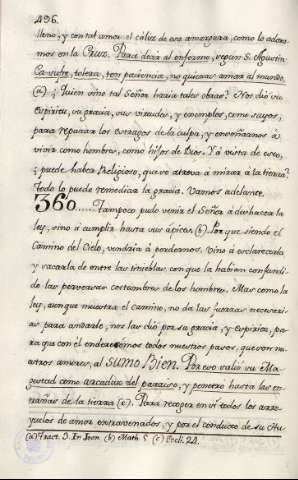 496.
lleno, y con tal amor el caliz de esa amargura, como lo adoramos en la Cruz. Para decir al enfermo, segun S. Agustin
tolera, ten paciencia, no quieras amar al mundo,
(a) ¿Quien sino tal Señor haria tales obras? Nos dió su
Espiritu, su gracia, sus virtudes, y exemplos, como suyos,
para reparar los estragos de la culpa, y enseñarnos á
vivir como hombres, como hijos de Dios. Y á vista de esto,
¿puede haber Religioso, que se atreva á mirar á la tierra?
Todo lo puede remediar la gracia. Vamos adelante.
360..... Tampoco pudo venir el Señor a deshacer la
ley, sino á cumplirla hasta sus ápices (b). Por que siendo el
Camino del Cielo, vendria á perdernos. Vino á esclarecerla
y sacarla de entre las tinieblas con que la habian confundido las perversas costumbres de los hombres. Mas como la
ley, aunque muestra el camino, no da las fuerzas necesarias para andarle, nos las dió por su gracia, y Espiritu, para que con el enderecemos todos nuestros pasos, que son nuestros amores, al SUMO Bien. Por eso salió su Magestad como arcaduz del paraiso, y penetró hasta las entrañas de la tierra (c). Para recoger en sí todos los arroyuelos de amor extravenados, y por el conducto de su Hu
(a) Tract. 3. In Joan (b) Math. 5 (c) Ecli. 24.